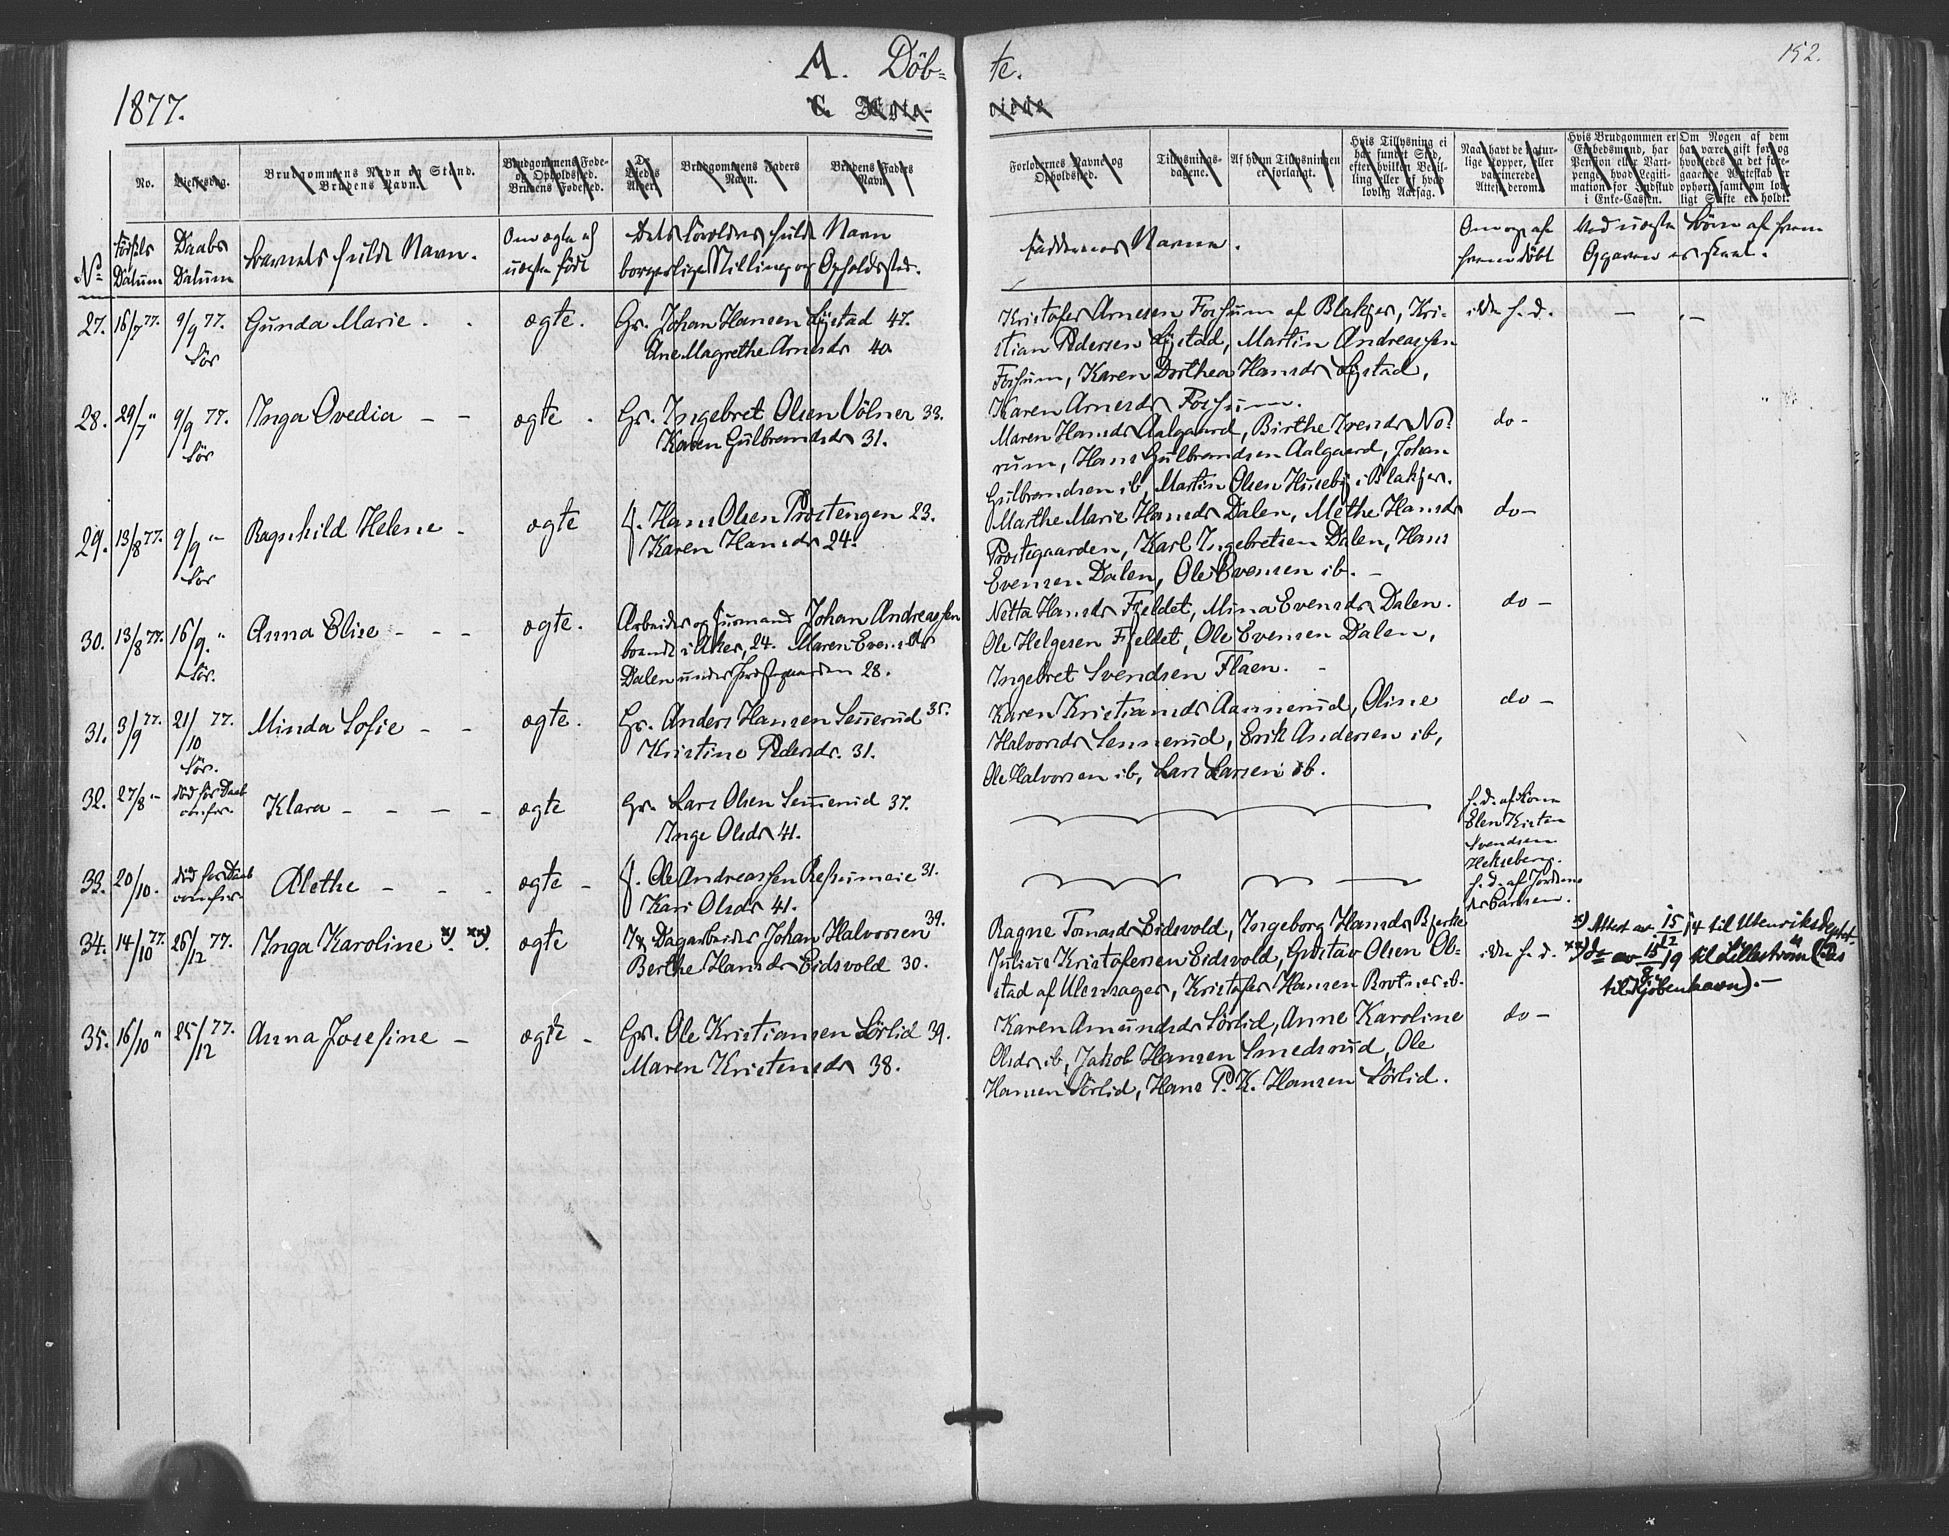 A. Döb= te. 152.
1877.
C. Egte- viede
No. Vielsesdag. Brudgommens Navn og Stand. Brudens Navn. Brudgommens Føde- og Opholdssted. Brudens Fødested. De Viedes Alder. Brudgommens Faders Navn. Brudens Faders Navn.
Forlovernes Navne og Opholdssted. Tillysnings-dagene. Af hvem Tillysningen er forlangt. Hvis Tillysning ei har fundet Sted, efter hvilken Bevil-ling eller af hvad lovlig Aarsag. Naar havt de natur-lige Kopper, eller vaccinerede. Attest derom. Hvis Brudgommen er Embedsmand, har Pension eller Vart-penge, hvad Legiti-mation for Indskud i Enke-Cassen. Om Nogen af dem har været gift før, og hvorledes da det fore-gaaende Ægteskab er ophørt, samt om lov-ligt Skifte er holdt.
No Födsels Datum Daabs Datum Barnets fulde Navn. Om ægte el. uægte födt Dets Forældres fulde Navn borgerlige Stilling og Opholdssted.
Faddernes Navne. Om og af hvem döbt Ved uægte Börn af hvem Opgaven er skeet.
27. 16/7 77. 9/9 77. Sör Gunda Marie . . ægte. Gr. Johan Hansen Lystad 47.
Ane Magrethe Arnesdr 40
Kristofer Arnesen Forsum af Blakjer, Kri-
stian Pedersen Lystad, Martin Andreassen
Forsum, Karen Dorthea Hansdr Lystad,
Karen Arnesdr Forsum.
ikke h. d. — . —
28. 29/7 " 9/9 77. Sör Inga Ovedia — — ægte . Gr. Ingebret Olsen Völner 33.
Karen Gulbrandsdr 31.
Maren Hansdr Aalgaard, Birthe Ivensdr No-
rum, Hans Gulbrandsen Aalgaard, Johan
Gulbrandsen ib, Martin Olsen Huseby i Blakjer.
do -
29. 13/8 77. 9/9 " Sör Ragnhild Helene - ægte J. Hans Olsen Prostengen 23.
Karen Hansdr 24.
Marthe Marie Hansdr Dalen, Methe Hansdr
Prostegaarden, Karl Ingebretsen Dalen, Hans
Evensen Dalen, Ole Evensen ib. -
do -
30. 13/8 77. 16/9. " Sör. Anna Elise - - - ægte. Arbeider og Husmand Johan Andreassen
i Aker, 24. Maren Evensdr
Dalen under Prostegaarden 28.
Netta Hansdr Fjeldet, Mina Evensdr Dalen.
Ole Helgesen Fjeldet, Ole Evensen Dalen,
Ingebret Svendsen Flaen. -
do -
31. 3/9 77. 21/10 77. Sör. Minda Sofie - - ægte. Gr. Anders Hansen Sennerud 35.
Kristine Pedersdr. 31.
Karen Kristiansdr Aannerud, Oline
Halvorsdr Sennerud, Erik Andersen ib,
Ole Halvorsen ib, Lars Larsen ib.
do -
32. 27/8 " död för Daab Klara - - - - ægte Gr. Lars Olsen Sennerud 37.
Inge Olsdr 41.
h. d. af Kone
Elen Kirsten
Svendsen
Hekseberg.
33. 20/10. död för Daab Alethe - - - ægte - J. Ole Andreassen 31.
Kari Olsdr 41.
h. d. af Jordem
34. 14/10 77. 26/12 77. Inga Karoline x). xx). ægte I & Dagarbeider Johan Halvorsen 39.
Berthe Hansdr Eidsvold 30.
Ragne Tomasdr Eidsvold, Ingeborg Hansdr Bjerke
Julius Kristofersen Eidsvold, Gustav Olsen Ol-
stad af Ulensager, Kristofer Hansen Brotner ib.
ikke h. d.
x) Attest av 15/12 14 til Utenriksdeptet.
xx) do av 15/8 19 til Lilleström (
til Kjöbenhavn). -
35. 16/10 " 25/12 77. Anna Josefine - ægte - Gr. Ole Kristiansen Sörlid 39.
Maren Kristensdr 38.
Karen Amundsdr Sörlid, Anne Karoline
Olsdr ib, Jakob Hansen Smedsrud, Ole
Hansen Sörlid, Hans P. K. Hansen Sörlid.
do -